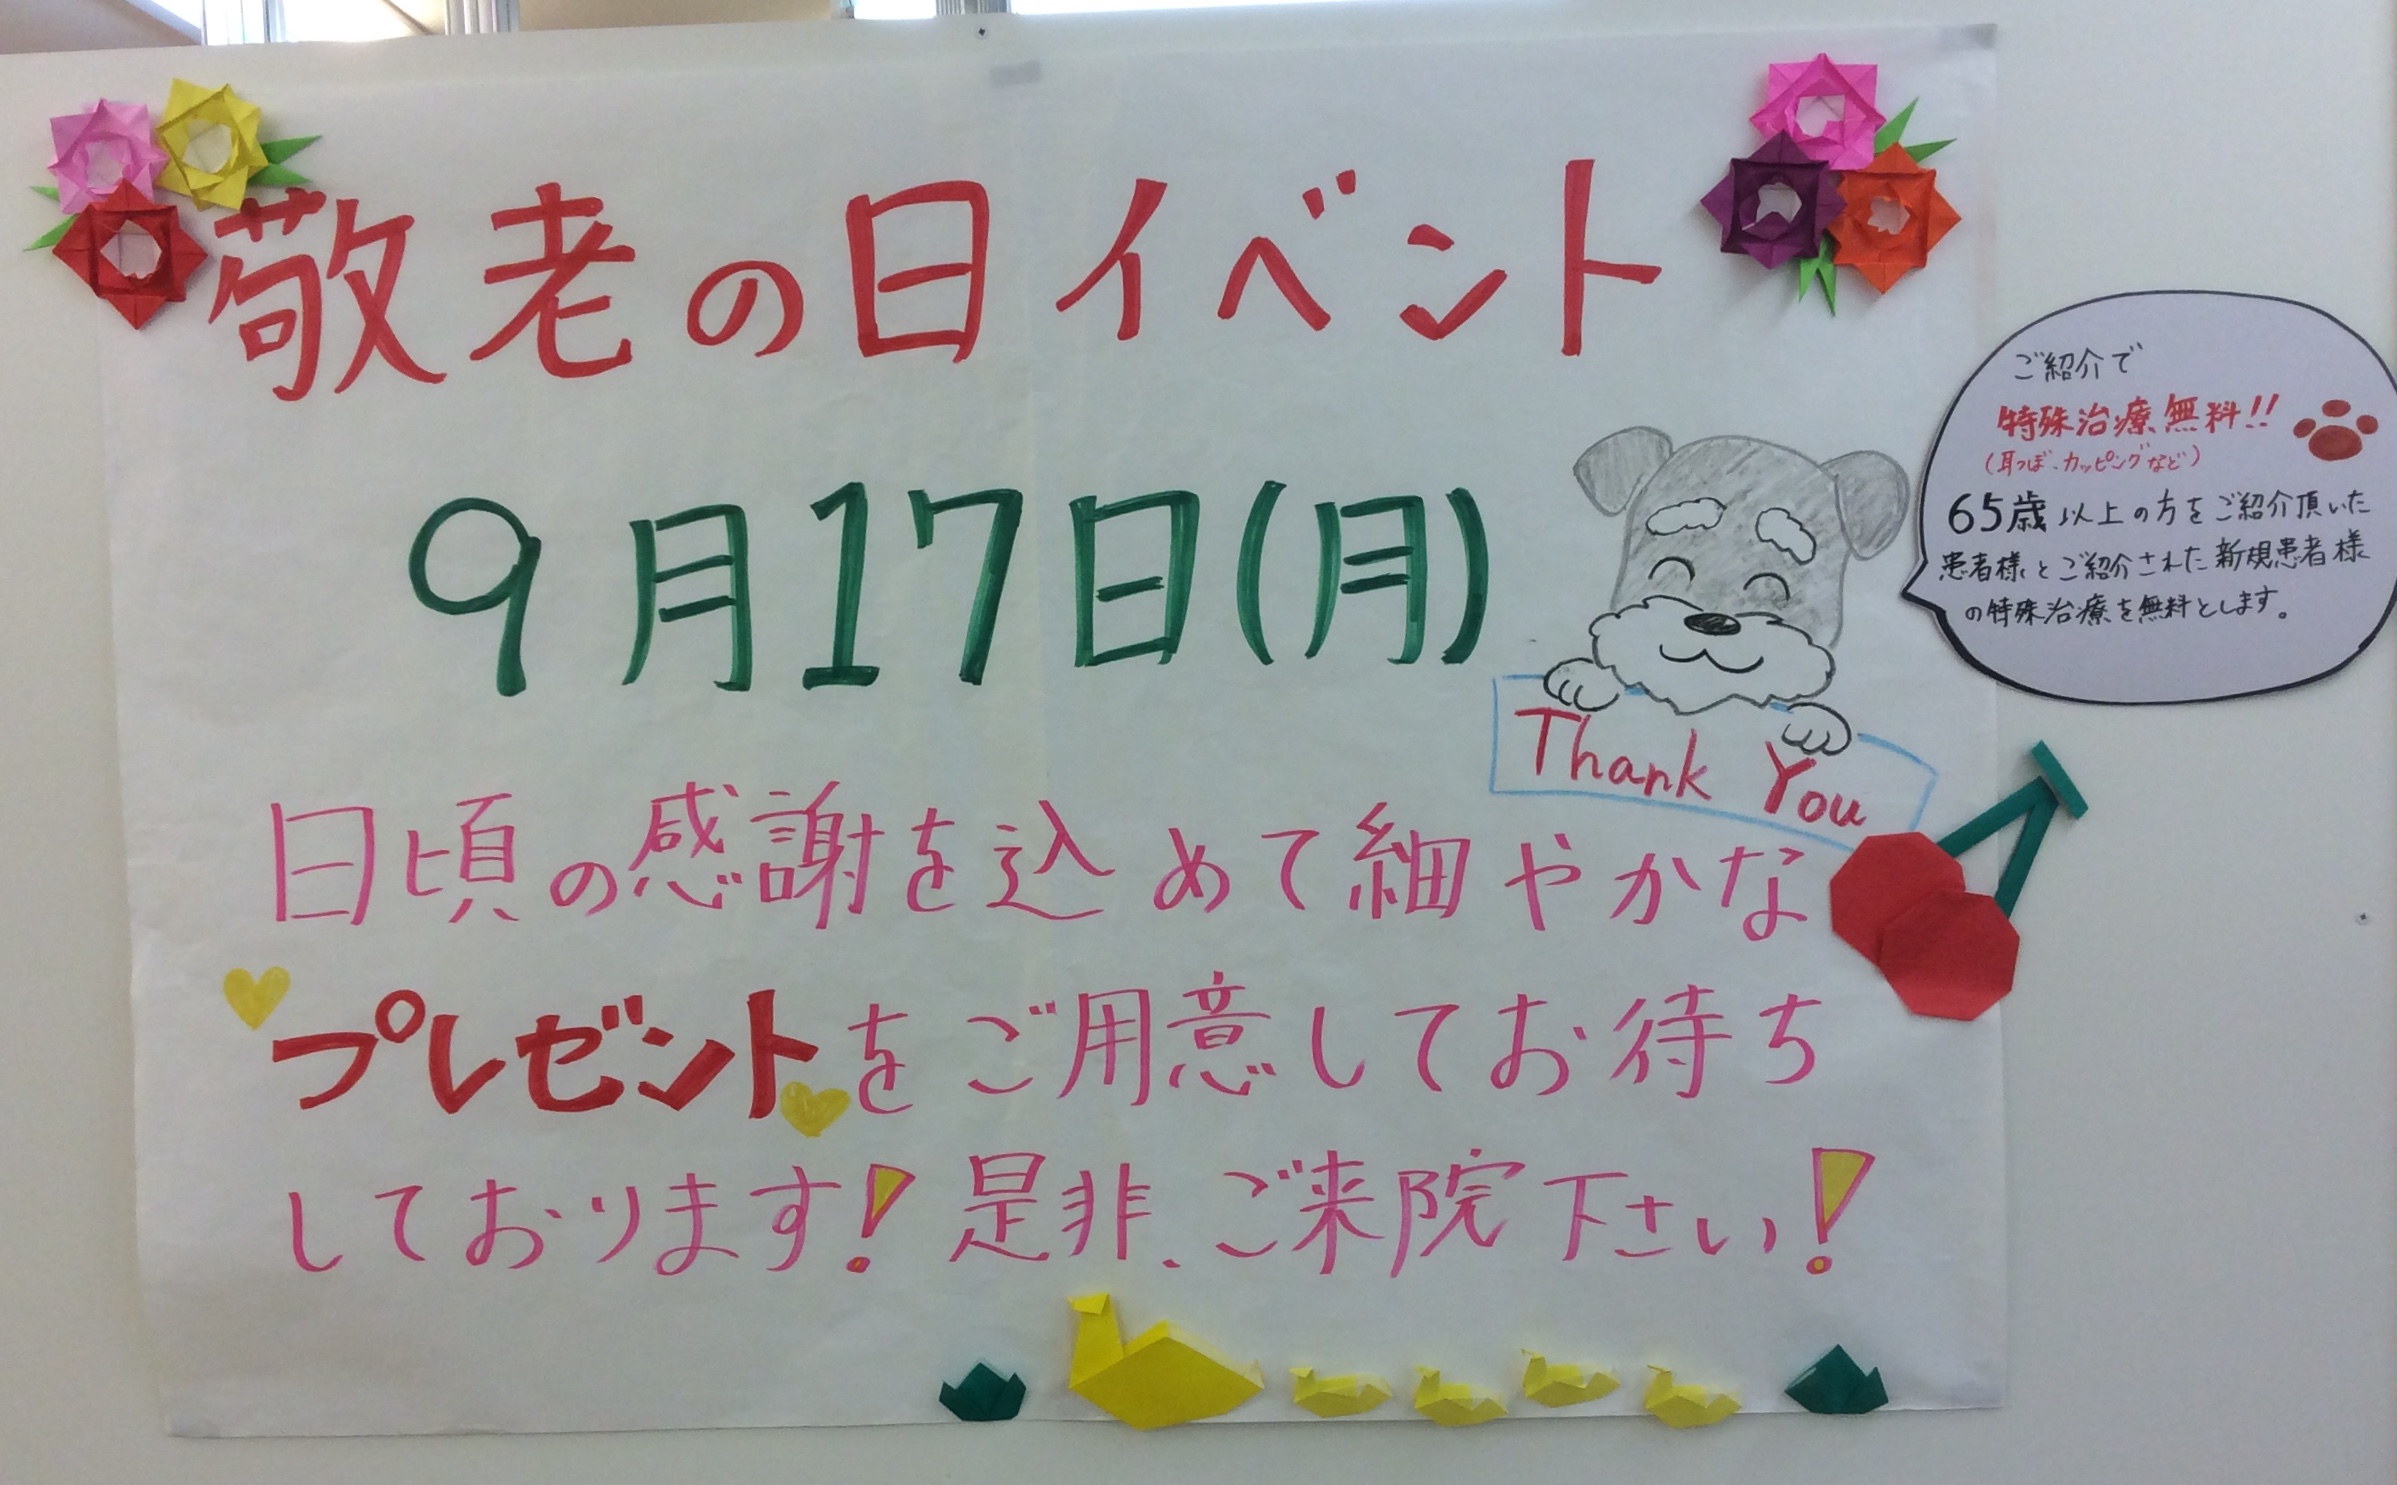 敬老の日イベント
9月17日(月)
日頃の感謝を込めて細やかな
プレゼントをご用意してお待ち
しております!是非、ご来院下さい!
Thank You
ご紹介で
特殊治療無料!!
(耳つぼ、カッピングなど)
65歳以上の方をご紹介頂いた
患者様とご紹介された新規患者様
の特殊治療を無料とします。